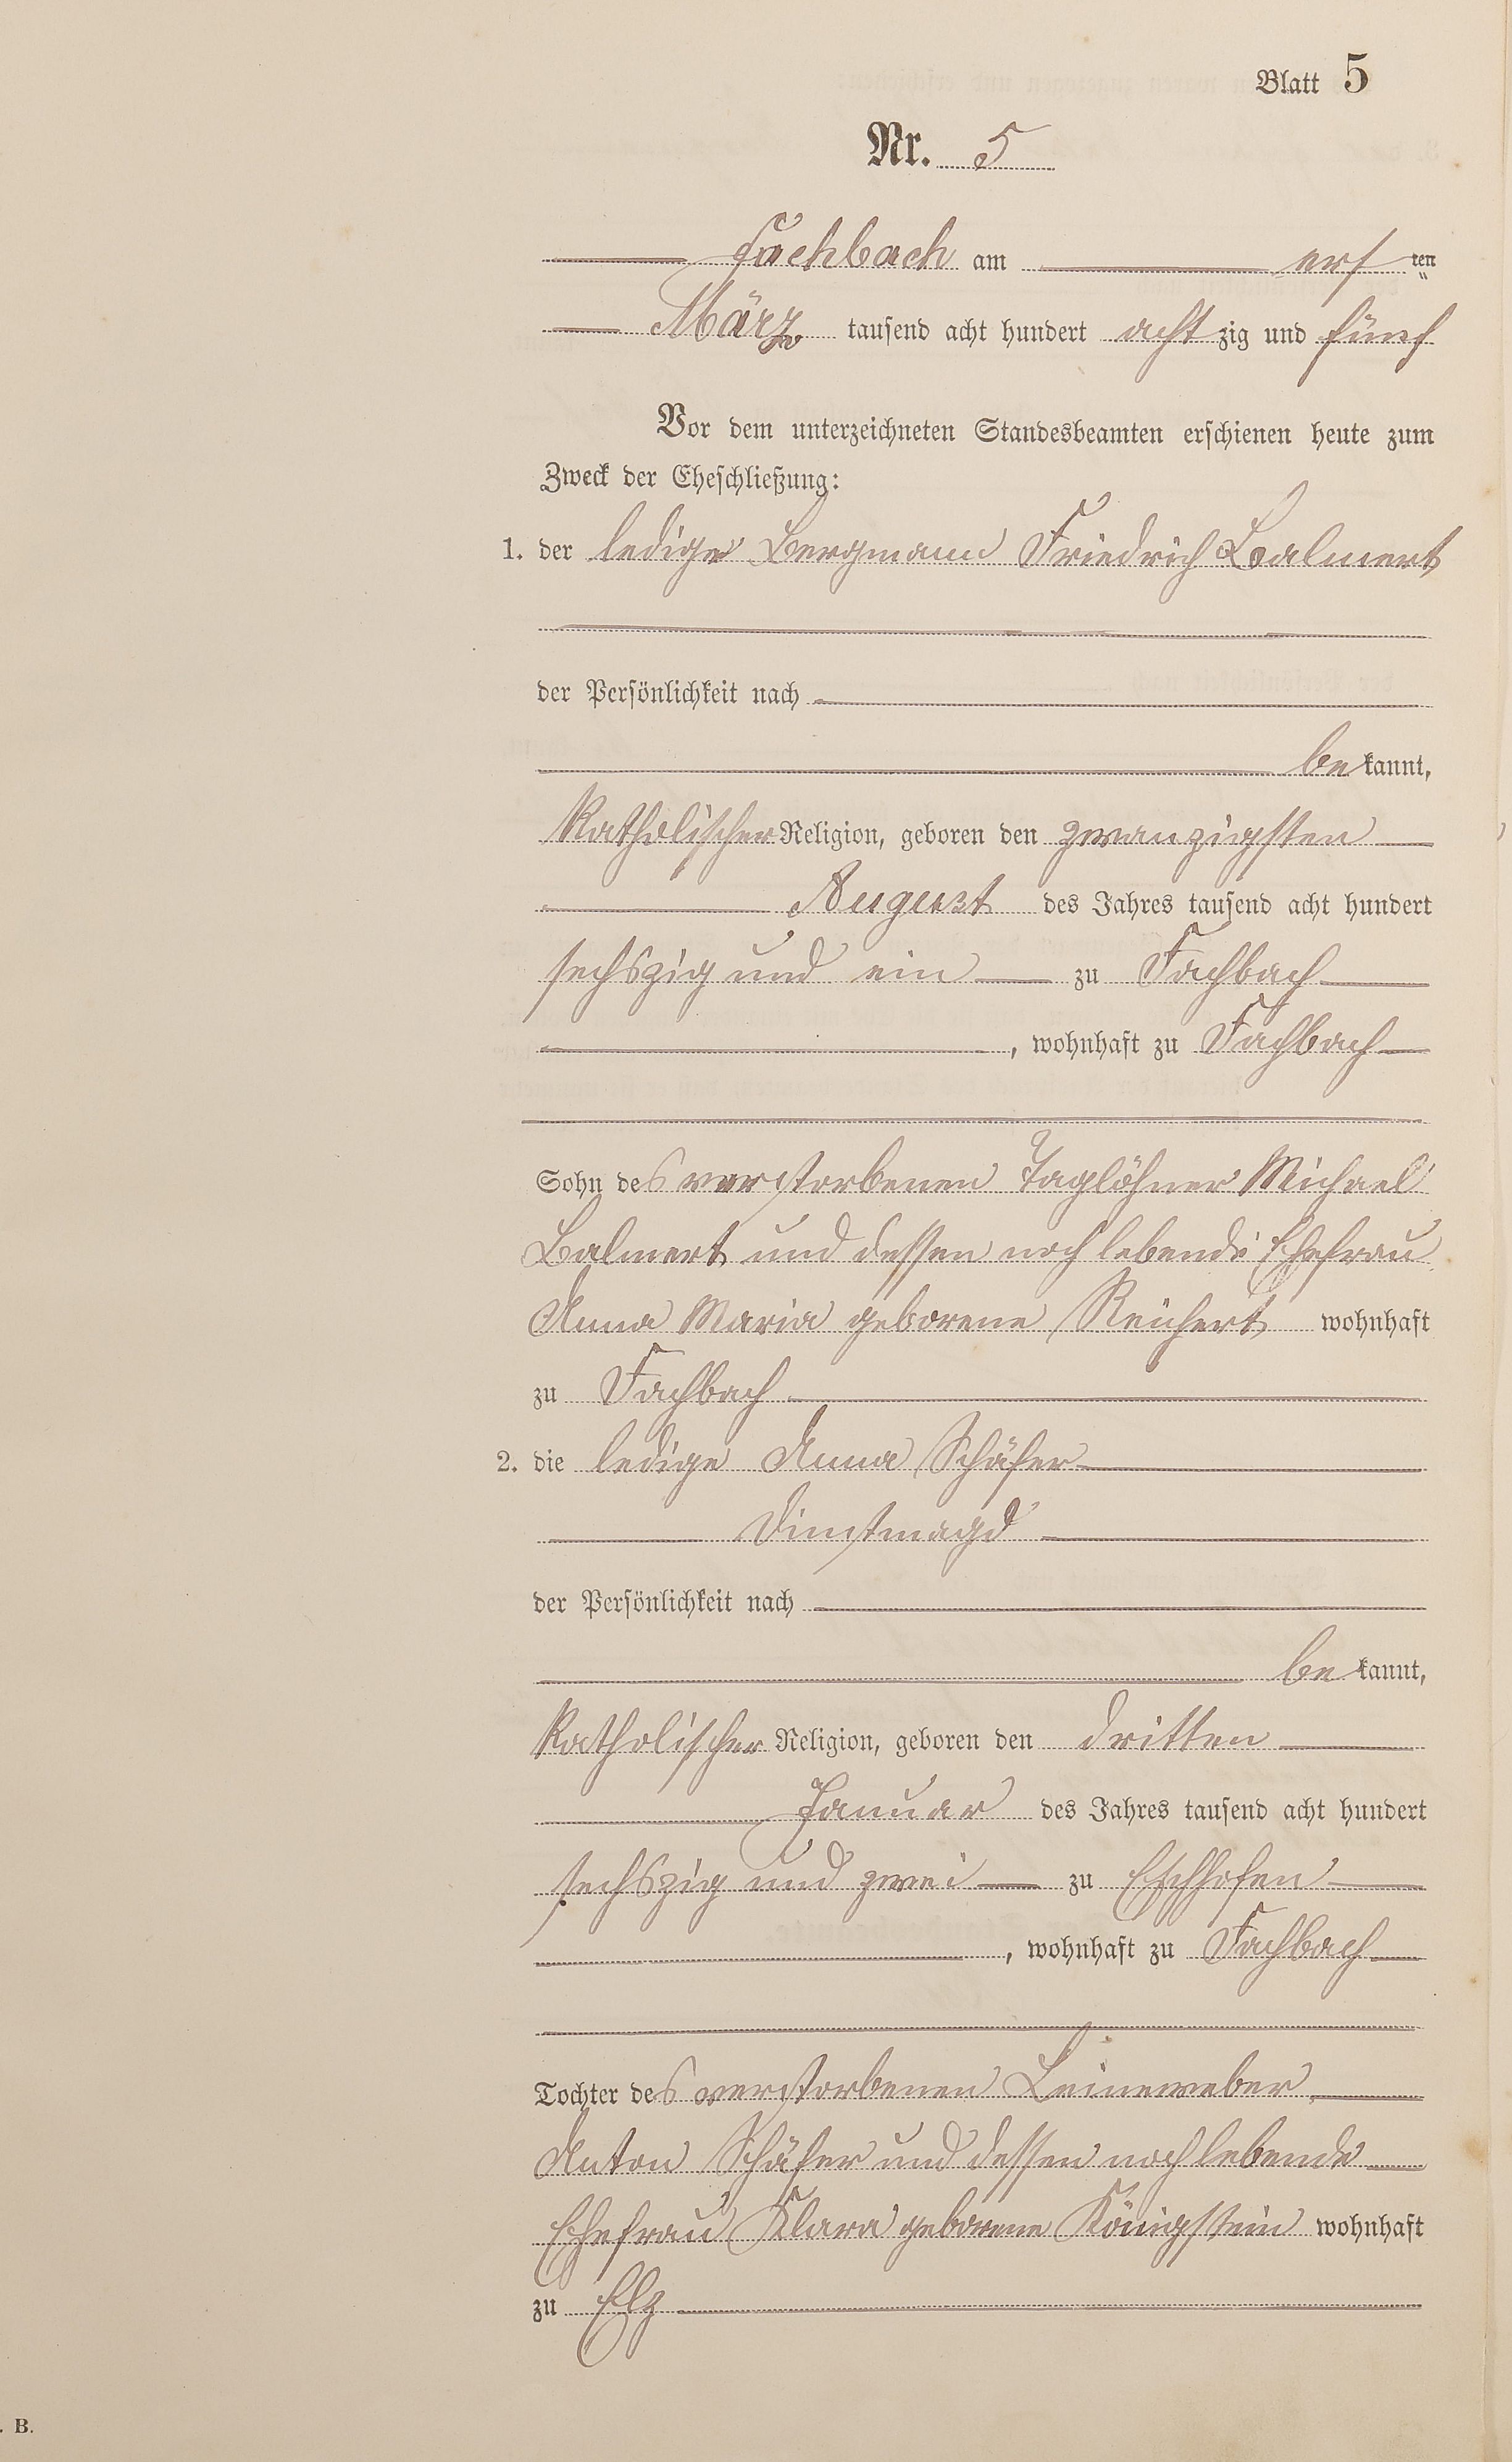 Blatt 5
Nr. 5
Fachbach am ersten
März tausend acht hundert achtzig und fünf
Vor dem unterzeichneten Standesbeamten erschienen heute zum
Zweck der Eheschließung:
1. der ledige Bergmann Friedrich Balmert
der Persönlichkeit nach
bekannt,
katholischer Religion, geboren den zwanzigsten
August des Jahres tausend acht hundert
sechszig und ein zu Fachbach
, wohnhaft zu Fachbach
Sohn des verstorbenen Taglöhner Michael
Balmert und dessen noch lebende Ehefrau
Anna Maria geborene Reichert wohnhaft
zu Fachbach
2. die ledige Anna Schäfer
Dienstmagd
der Persönlichkeit nach
bekannt,
katholischer Religion, geboren den dritten
Januar des Jahres tausend acht hundert
sechszig und zwei zu Eschhofen
, wohnhaft zu Fachbach
Tochter des verstorbenen Leineweber
Anton Schäfer und dessen noch lebende
Ehefrau Klara geborene Königstein wohnhaft
zu Elz
. B.